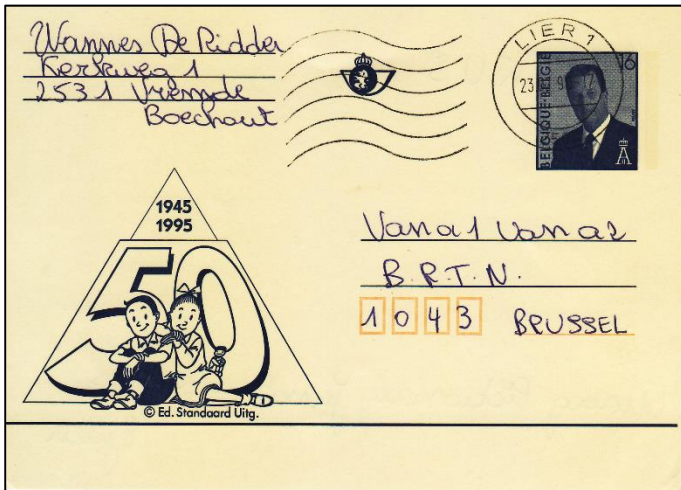 Wannes De Ridder
Kerkweg 1
2531 Vremde
Boechout
LIER 1
23
16
BELGIQUE·BELGIË
1945
1995
50
© Ed. Standaard Uitg.
Vana1 Vanaz
B.R.T.N.
1043 BRUSSEL